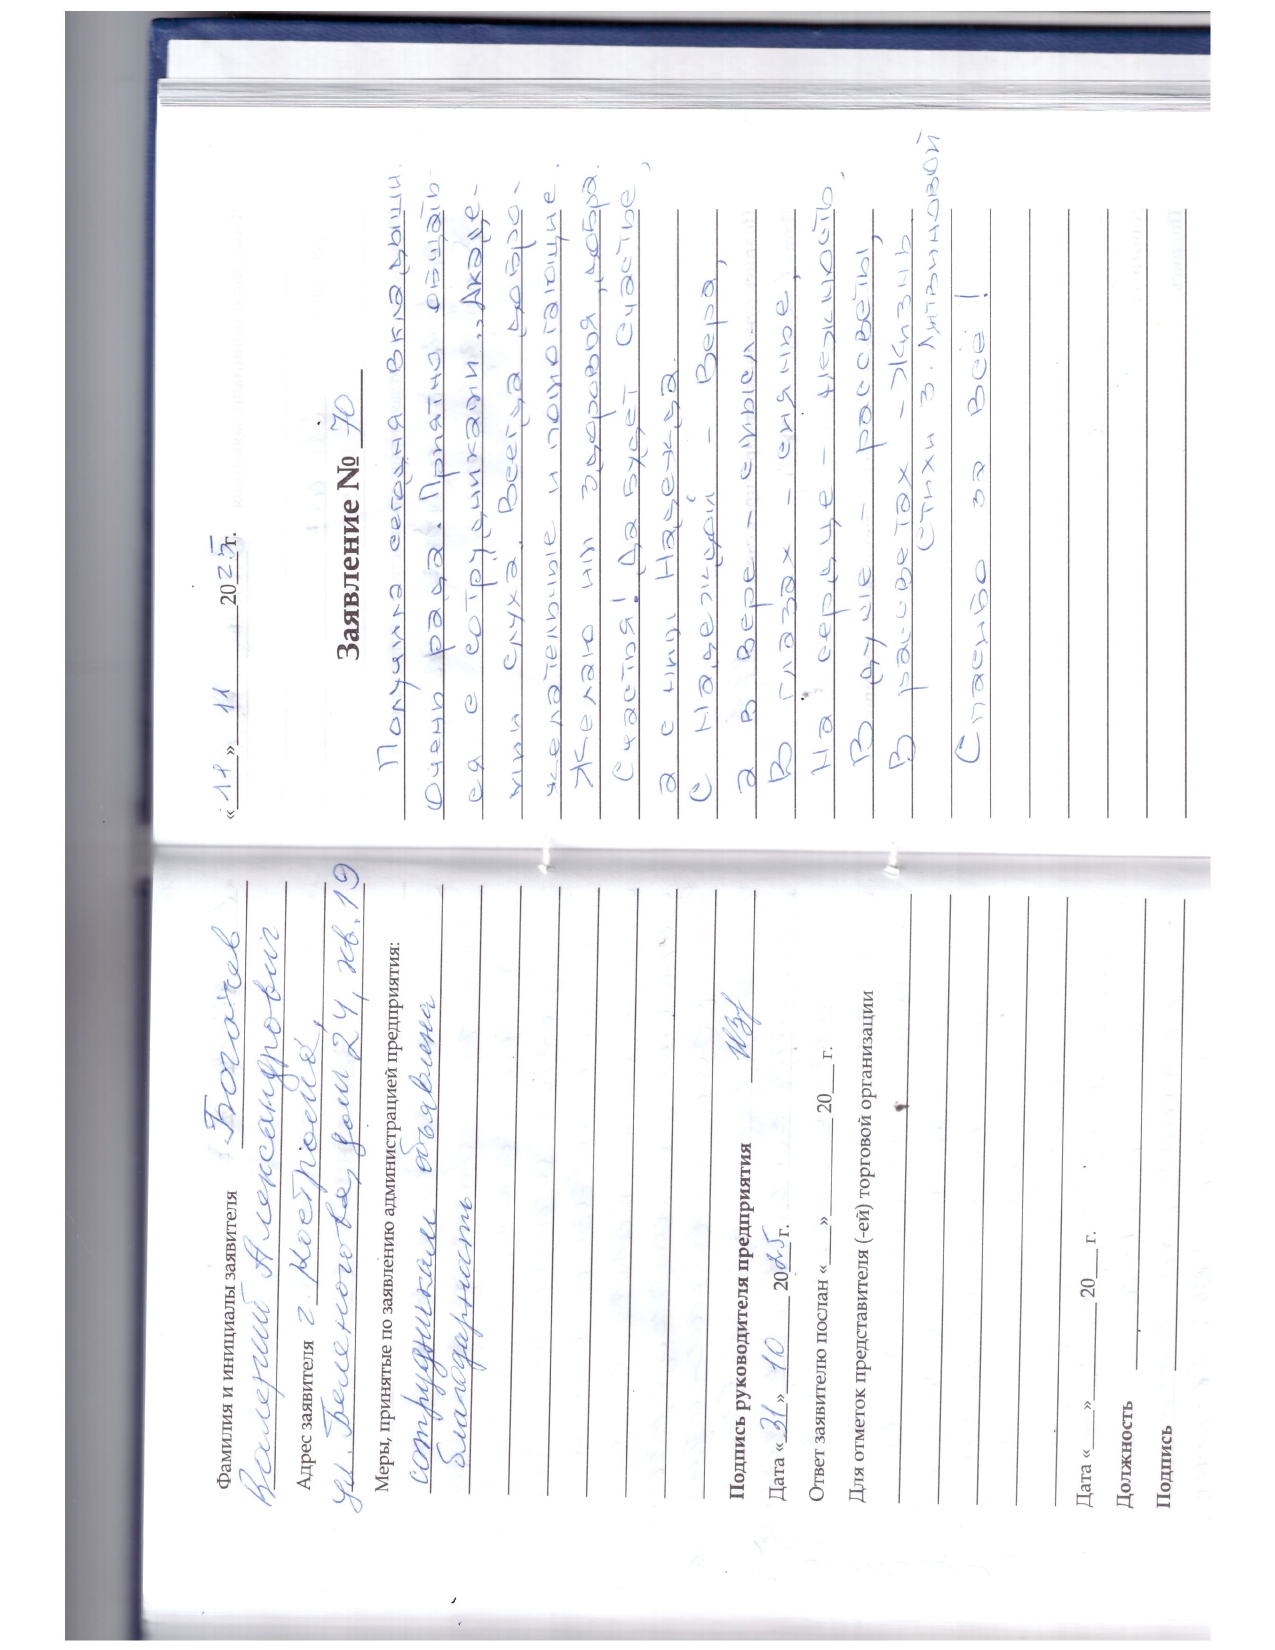 Фамилия и инициалы заявителя Богачев
Валерий Александрович
Адрес заявителя г. Кострома,
ул. Беленогова, дом 24, кв. 19
Меры, принятые по заявлению администрацией предприятия:
сотрудникам объявлена
благодарность
Подпись руководителя предприятия
Дата «31» 10 2025 г.
Ответ заявителю послан «___»________ 20___ г.
Для отметок представителя (-ей) торговой организации
Дата «___»________ 20___ г.
Должность
Подпись
«11» 11 2025 г.
Заявление № 70
Получила сегодня вкладыши.
Очень рада. Приятно общать-
ся с сотрудниками „Акаде-
мии слуха. Всегда добро-
желательные и помогающие.
Желаю им здоровья, добра.
Счастья! Да будет Счастье,
а с ним Надежда.
С Надеждой - Вера,
а в Вере - смысл.
В глазах - сияние,
На сердце - нежность.
В душе - рассветы,
В рассветах - Жизнь
Стихи З. Литвиновой
Спасибо за всё!